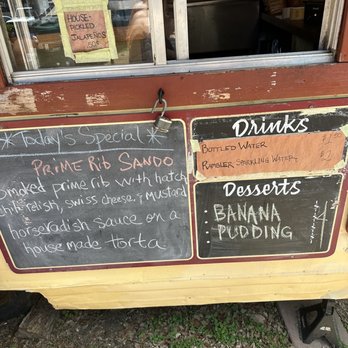 HOUSE-
PICKLED
JALAPEÑOS
50¢
*Today's Special*
PRIME RIB SANDO
Smoked prime rib with hatch
chili relish, swiss cheese, & mustard
horseradish sauce on a
house made torta
Drinks
BOTTLED WATER $1
RAMBLER SPARKLING WATER $2
Desserts
BANANA
PUDDING